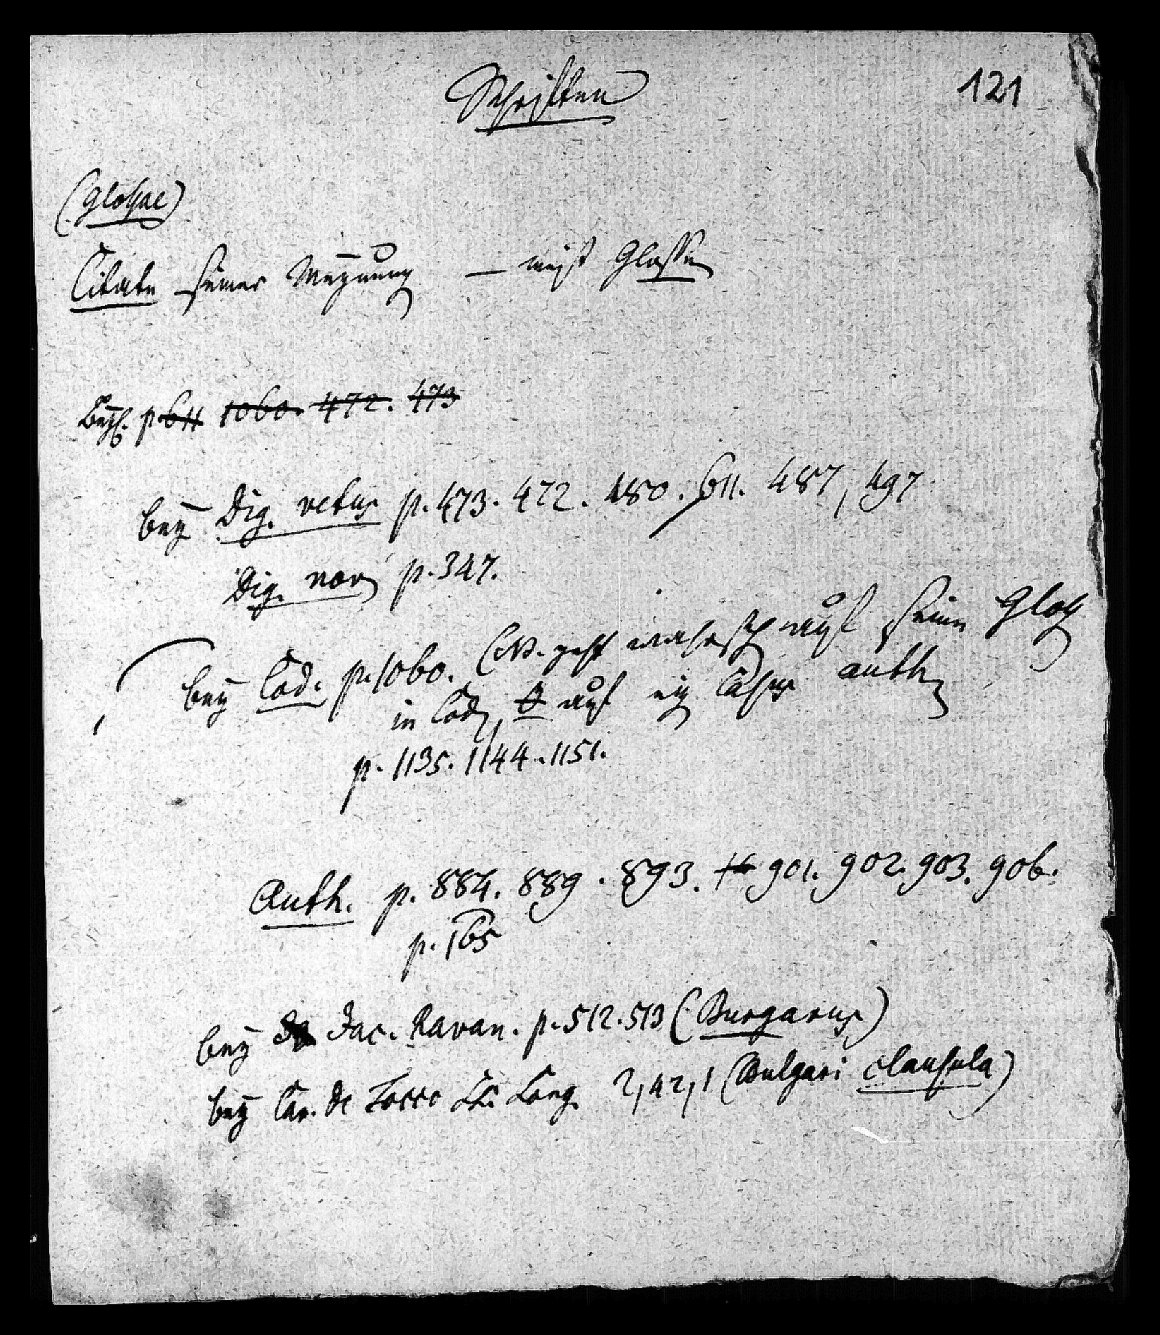 Schriften
121
(glossae)
Citate seiner Meynung — meist Glossen
p 611 1060. 472. 473
bey Dig. vetus p. 473. 472. 480. 611. 487, 497
Dig. nov p. 347.
bey Cod. p. 1060. (NB. geht auf seine Gloss
in Cod, auf auth
p. 1135. 1144. 1151.
Auth. p. 884. 889. 893. 901. 902. 903. 906.
p. 165
bey Jac. Ravan. p. 512. 513 (Burgarus)
bey Car. de Tocco Long. 2, 42, 1 (Bulgari clausula)